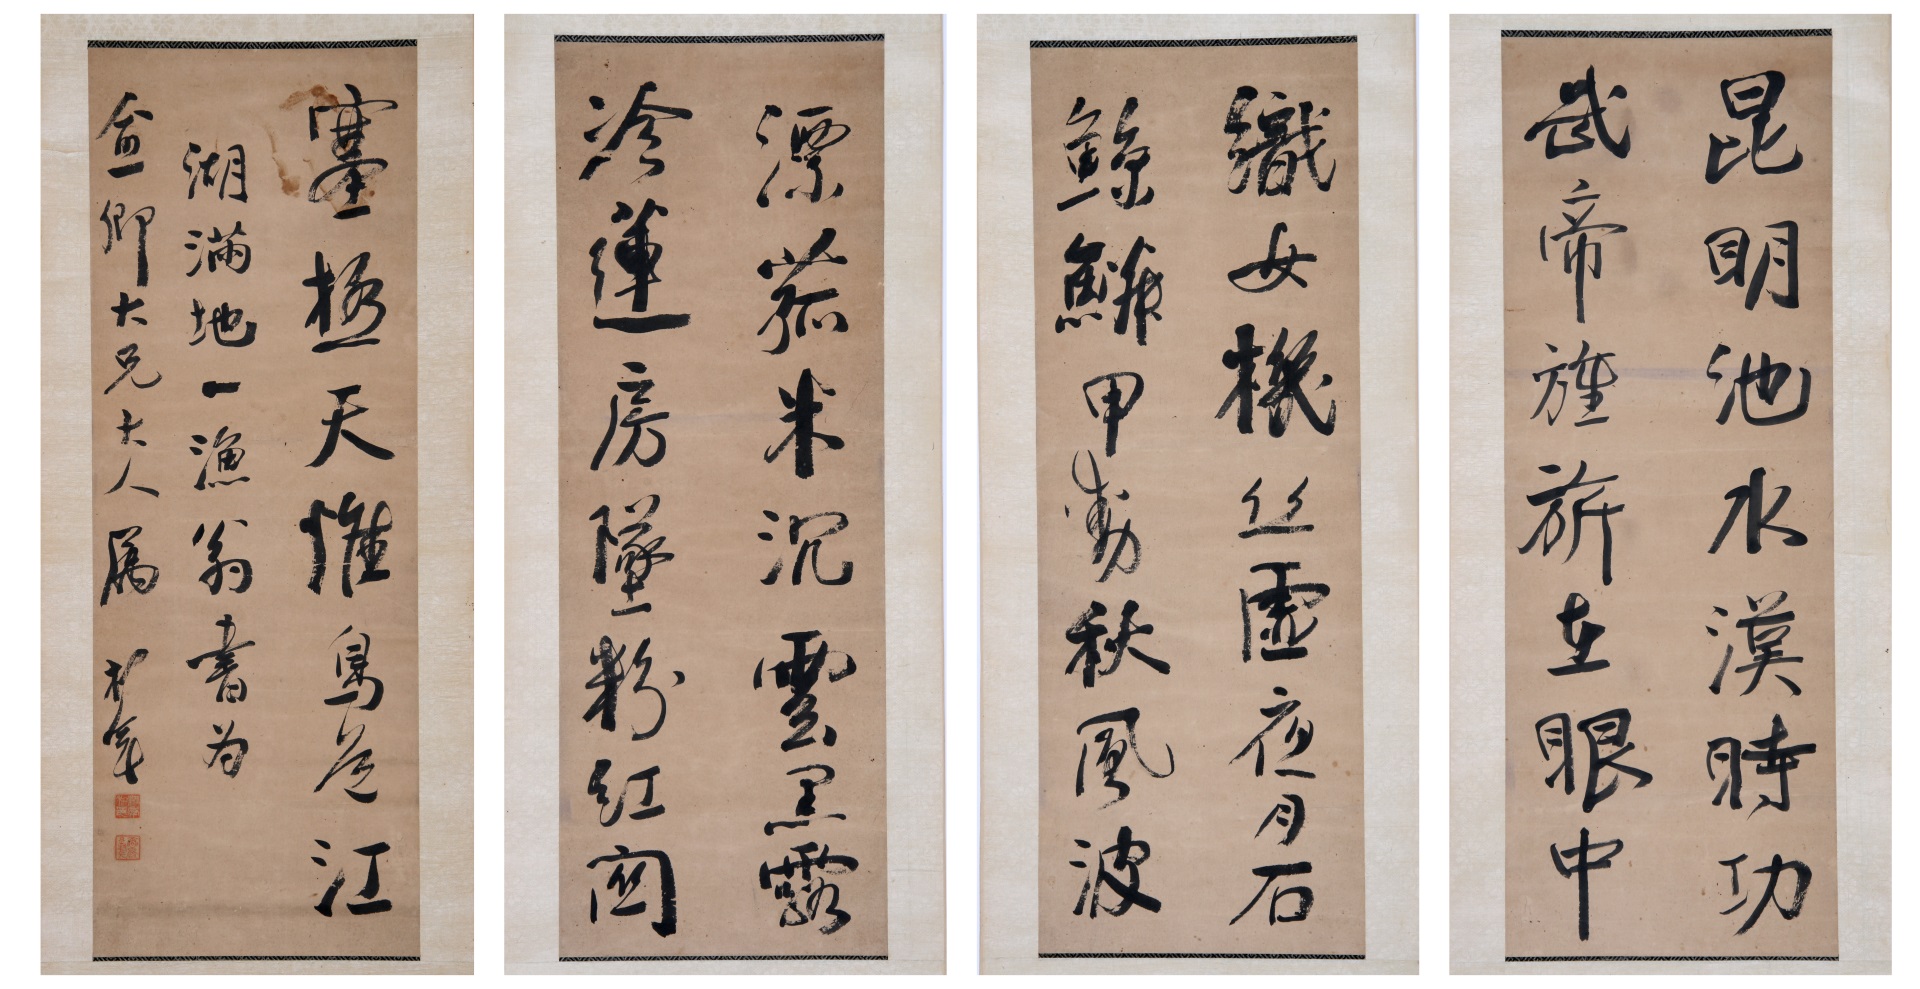 昆明池水漢時功
武帝旌旂在眼中
織女機絲虛夜月石
鯨鱗甲動秋風波
漂菰米沉雲黑露
冷蓮房墜粉紅關
塞極天惟鳥道江
湖滿地一漁翁書為
盒卿大兄大人屬